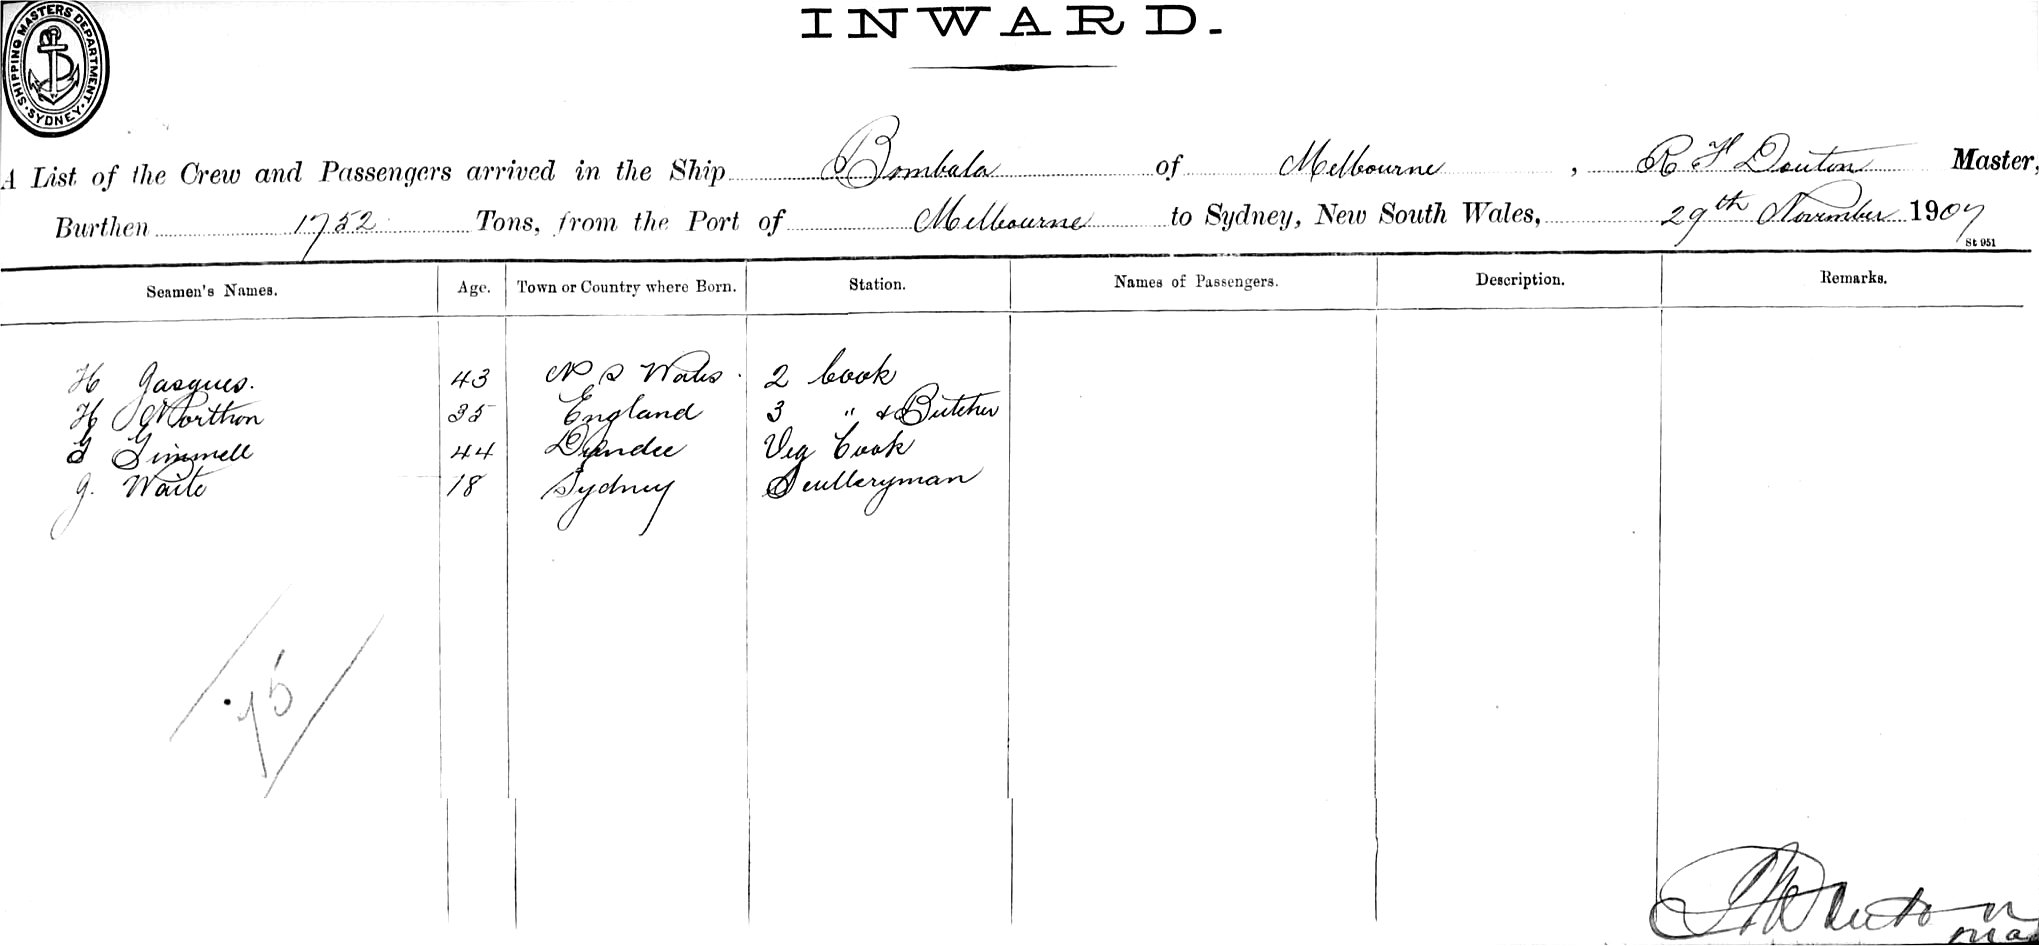 INWARD.
SHIPPING MASTERS DEPARTMENT. SYDNEY.
A List of the Crew and Passengers arrived in the Ship Bombala of Melbourne, R F Douton Master,
Burthen 1752 Tons, from the Port of Melbourne to Sydney, New South Wales, 29th November 1907
St 951
Seamen's Names. Age. Town or Country where Born. Station. Names of Passengers. Description. Remarks.
H Jasques. 43 N S Wales. 2 Cook
H Northon 35 England 3 " & Butcher
G Gimmell 44 Dundee Veg Cook
J. Waite 18 Sydney Sculleryman
75